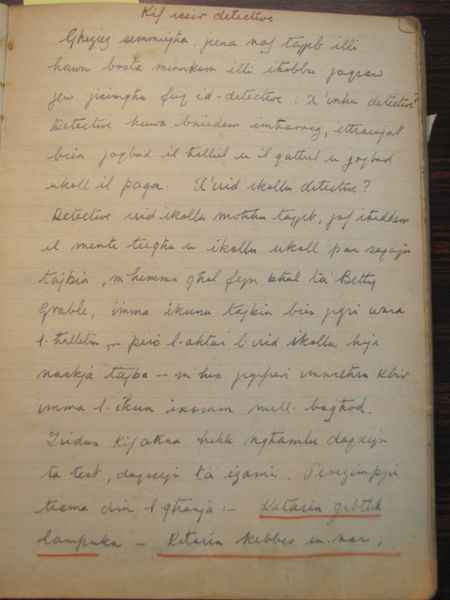 Kif issir detective
Għeżież semmiegħa. jena naf tajjeb illi
hawn bosta minnkom illi tħobbu taqraw
jew tisimgħu fuq id-detective. X'inhu detective?
Detective huwa bniedem imħarreġ, ittrenjat
biex jaqbad il ħallelin u il qattiel u jaqbad
ukoll il paga. X'irid ikollu detective?
Detective irid ikollu moħħu tajjeb, jaf iħaddem
il menti tiegħu u ikollu ukoll par saqajn
tajbin, m'hemmx għalfejn bħal ta' Betty
Grable, imma ikunu tajbin biex jiġri wara
l-ħallelin – però l-aktar li irid ikollu hija
naskja tajba – m'hux jiġifieri imnieħru kbir
imma li ikun ixomm mill-bogħod.
Issa kif aħna hekk ngħamlu daqsxejn
ta test, daqsxejn ta' eżami. Pereżempju
tisma din l-għanja :– Katarin ġibtlek
lampuka – Ketarin kebbes in-nar.